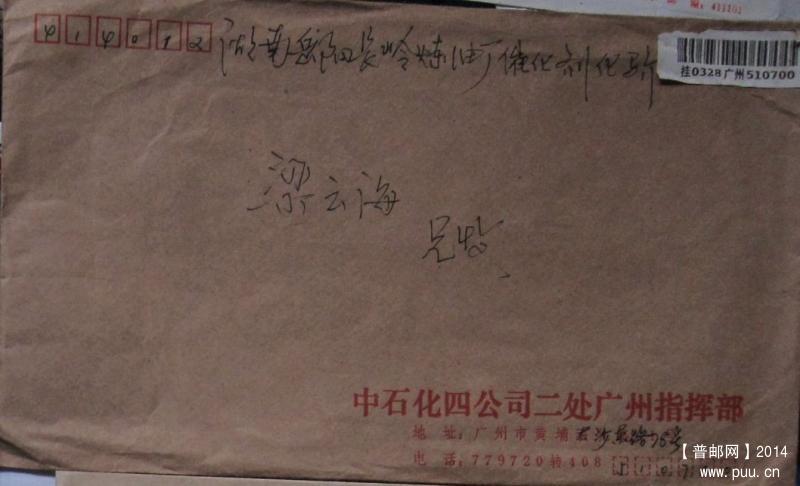 编: 411102
414012
湖南岳阳长岭炼油厂催化剂化验
挂0328广州510700
梁云海
兄收
中石化四公司二处广州指挥部
地 址: 广州市黄埔石沙东路76号
电 话: 779720转408
【普邮网】2014
www.puu.cn